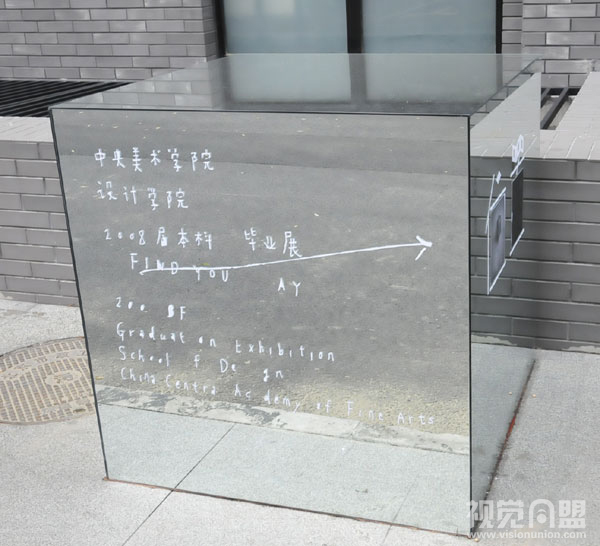 中央美术学院
设计学院
2008届本科 毕业展
FIND YOU
AY
200 BF
Graduat on Exhibition
School f De gn
China Centra Ac demy of Fine Arts
视觉同盟
www.visionunion.com